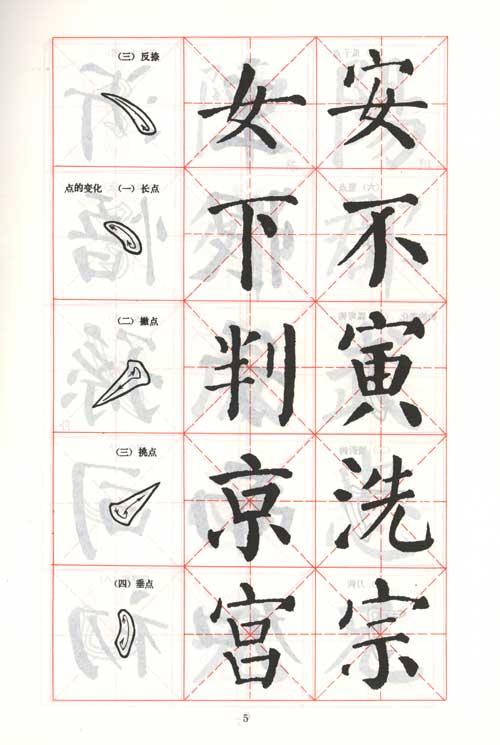 （三）反捺
女
安
点的变化 （一）长点
下
不
（二）撇点
判
寅
（三）挑点
京
洗
（四）垂点
宫
宗
5